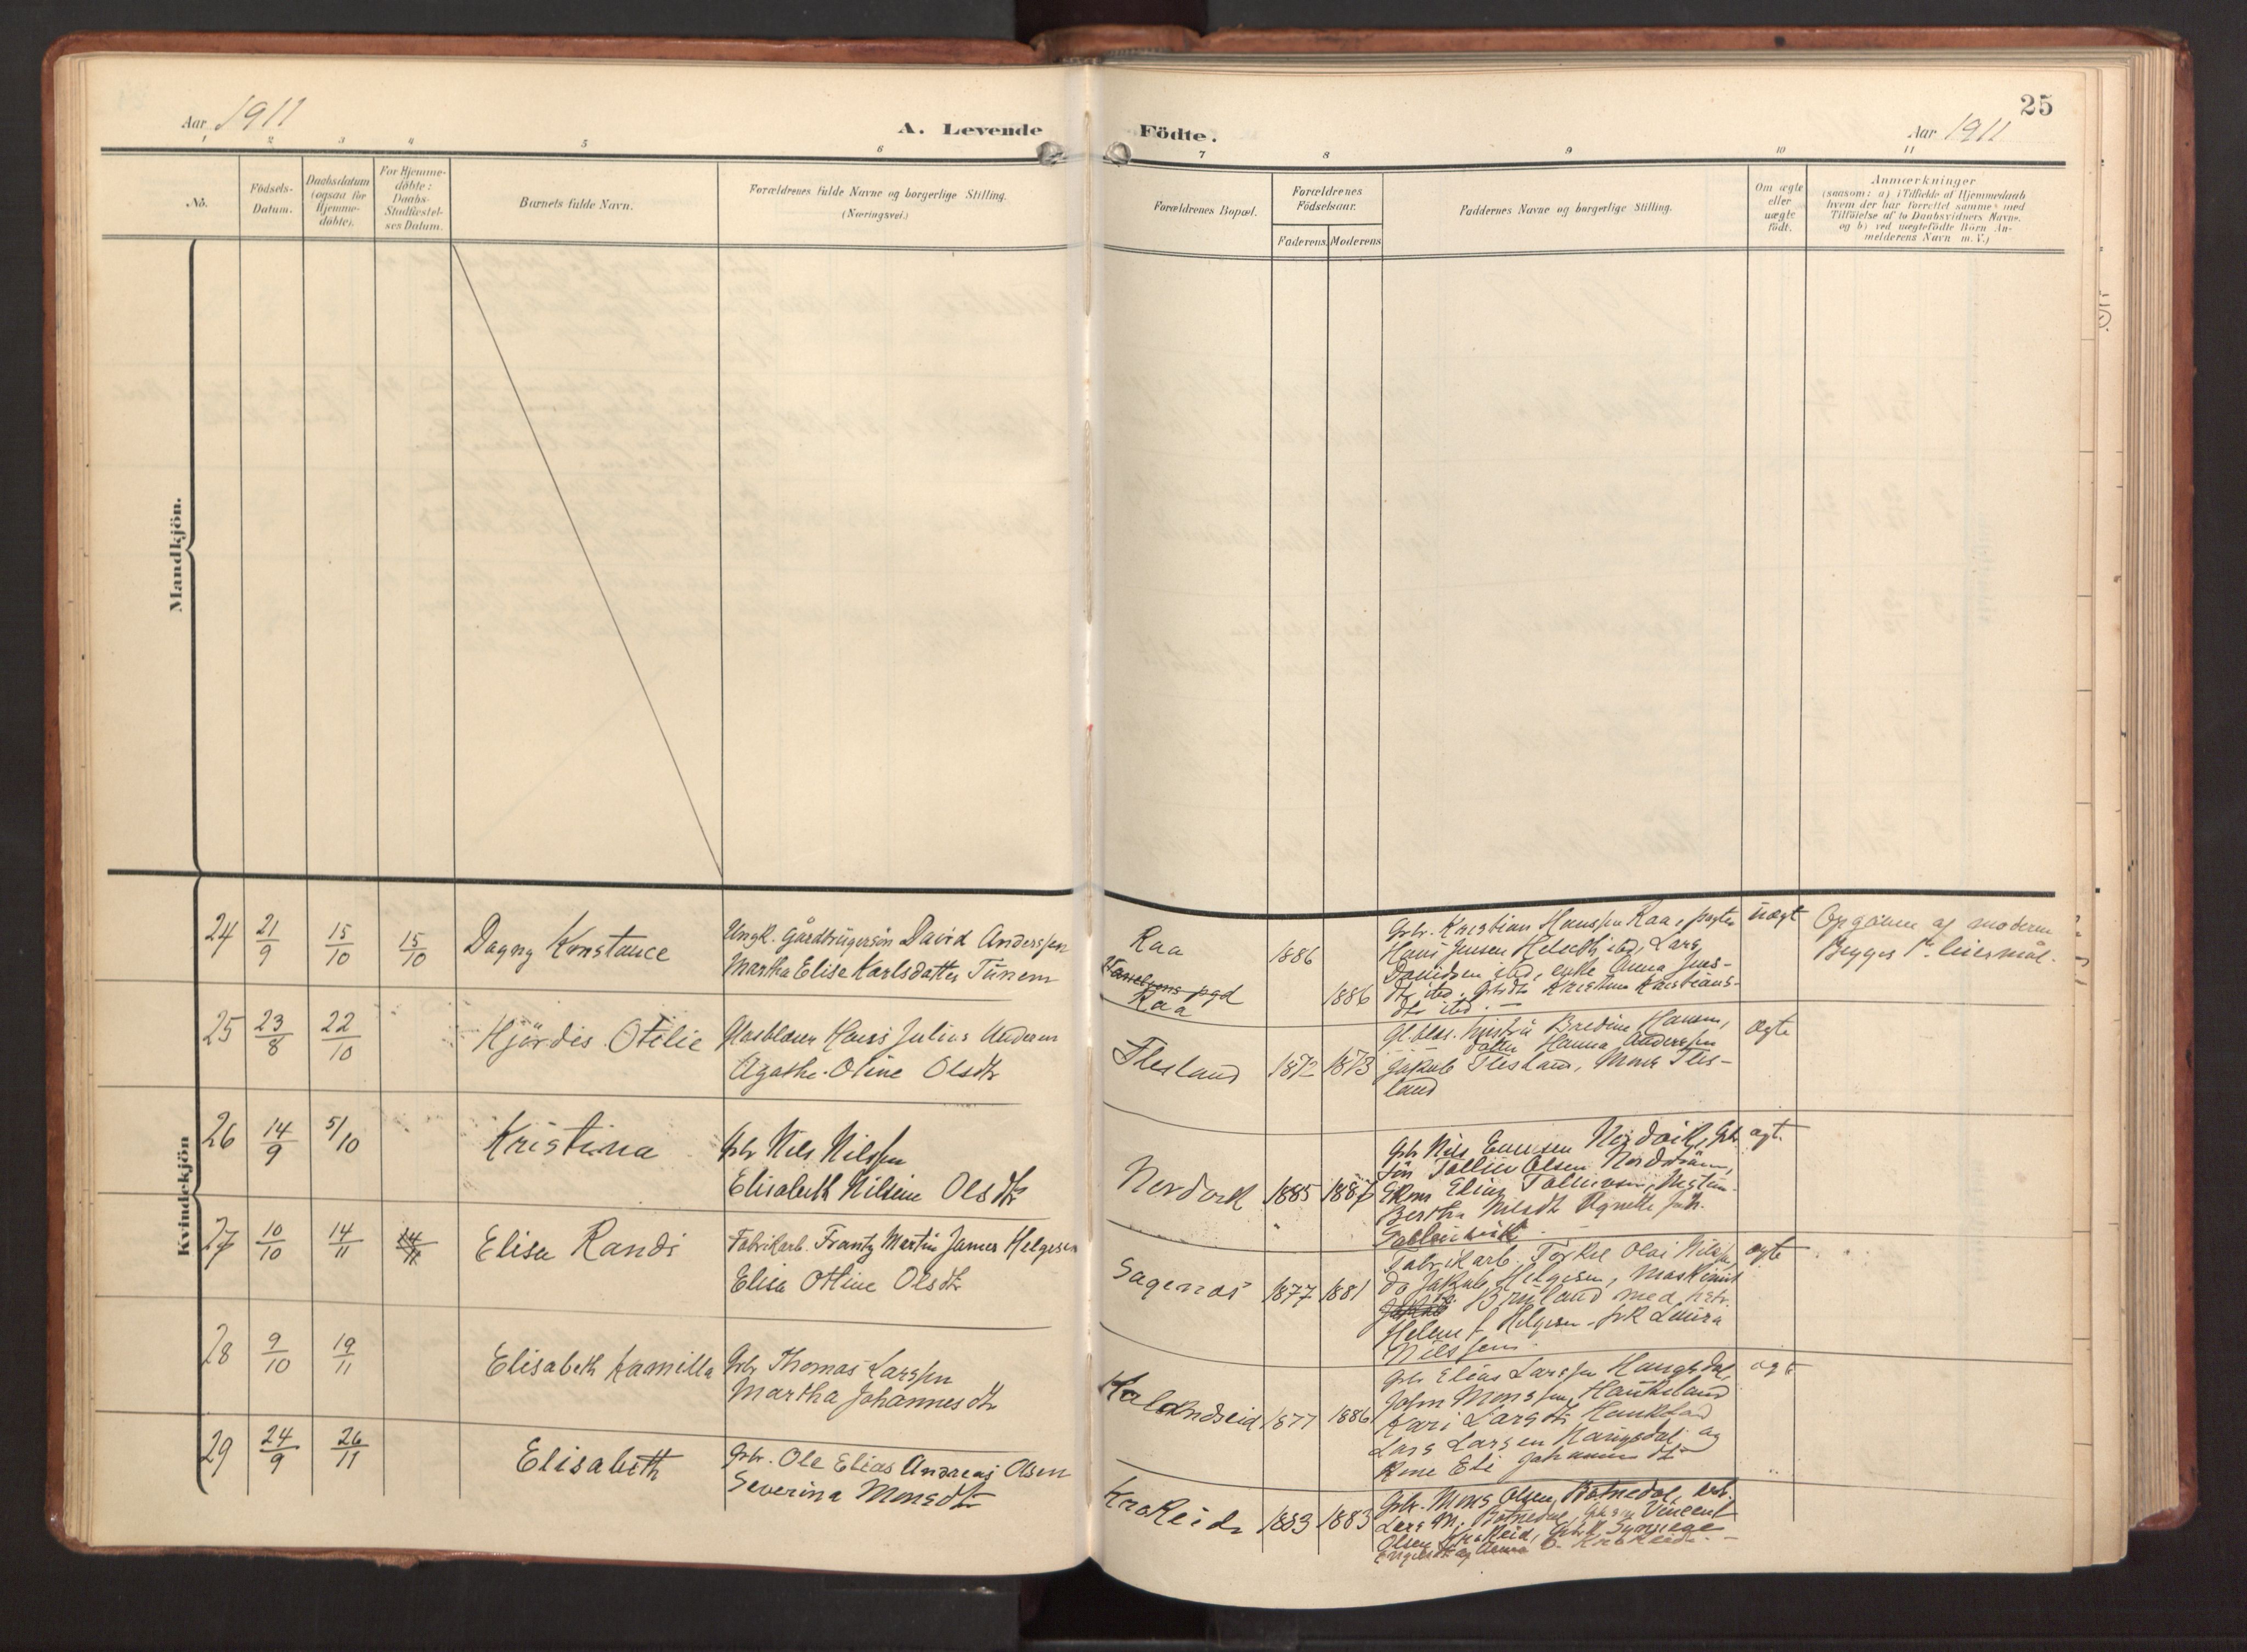 Aar 1911
A. Levende
Födte.
25
Aar 1911
1 2 3 4 5 6 7 8 9 10 11
No.
Födsels-
Datum.
Daabsdatum
(ogsaa for
Hjemme-
døbte).
For Hjemme-
døbte:
Daabs-
Stadfæstel-
ses Datum.
Barnets fulde Navn.
Forældrenes fulde Navne og borgerlige Stilling.
(Næringsvei.)
Forældrenes Bopæl.
Forældrenes
Födselsaar.
Faderens. Moderens
Faddernes Navne og borgerlige Stilling.
Om ægte
eller
uægte
födt.
Anmærkninger
(saasom: a) i Tilfælde af Hjemmedaab
hvem der har forrettet samme med
Tilföielse af to Daabsvidners Navne.
og b) ved uægtefödte Börn An-
melderens Navn m. V.)
Mandkjön.
Kvindekjön
24 21/9 15/10 15/10 Dagny Konstance
Ungk. Gårdbrugersön David Anderssen
Martha Elise Karlsdatter Tunem
Raa
Raa
1886
1886
Gbr. Kristian Hanssen Raa,
Hans Jensen ibd, Lars
Davidsen ibd, enke Anna Jens-
dtr ibd. Kristians-
dtr ibd.
uægt
Opgivne af moderen
Begges 1ste leiermål.
25 23/8 22/10 Hjördis Otilie
Glasblaser Hans Julius Andersen
Agathe Oline Olsdtr
Flesland 1872 1873
Gl.blas. hustru Bredine Hansen,
datter Hanna Anderssen
Jakob Flesland, Mons Fles-
land
ægte
26 14/9 5/10 Kristina
Gbr Nils Nilssen
Elisabeth Nilsine Olsdtr
Nordvik 1885 1887
Gbr Nils Nordvik, Gbr
Olsen
Elias
Bertha Nilsdtr
ægt.
27 10/10 14/11 Elisa Randi
Fabrikarb. Frantz Martin James Helgesen
Elisa Ottine Olsdtr
Sagenas 1877 1881
Fabrikarb. Torkel Olai Nilssen
do Jakob Helgesen, maskinist
med hstr.
Helene f. Helgesen. frk Laura
Nilssen.
ægte
28 9/10 19/11 Elisabeth Kamilla
Gbr Thomas Larssen
Martha Johannesdtr
Kalandseid 1877 1886
Gbr Elias Larssen Haugsdal,
John Monssen, Haukeland
Kari Larsdtr Haukeland
Lars Larsen Haugsdal og
Kone Eli Johannesdtr
ægt
29 24/9 26/11 Elisabeth
Gbr. Ole Elias Andreas Olsen
Severina Monsdtr
Krokeide 1883 1883
Gbr. Mons Olsen Botnedal, Gbr.
Lars M. Botnedal, Vincent
Olsen Krokeid,
og Anna O. Krokeide.